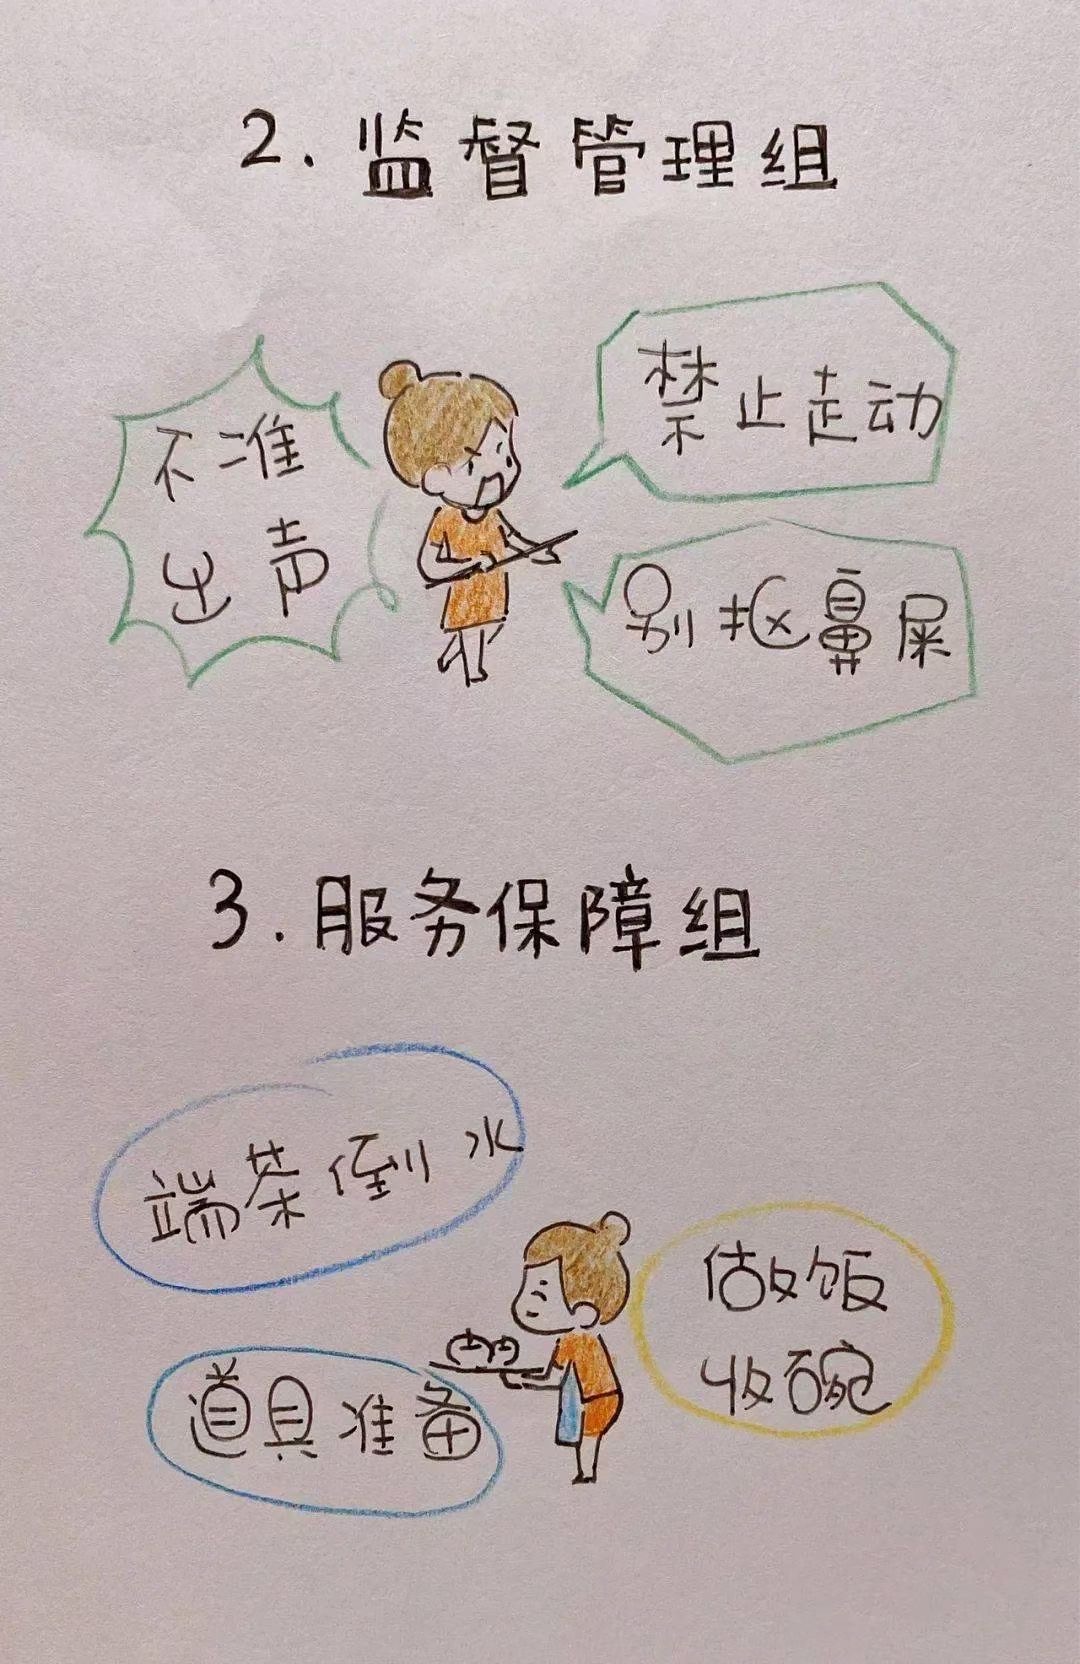 2. 监督管理组
不准
出声
禁止走动
别抠鼻屎
3. 服务保障组
端茶倒水
做饭
收碗
道具准备